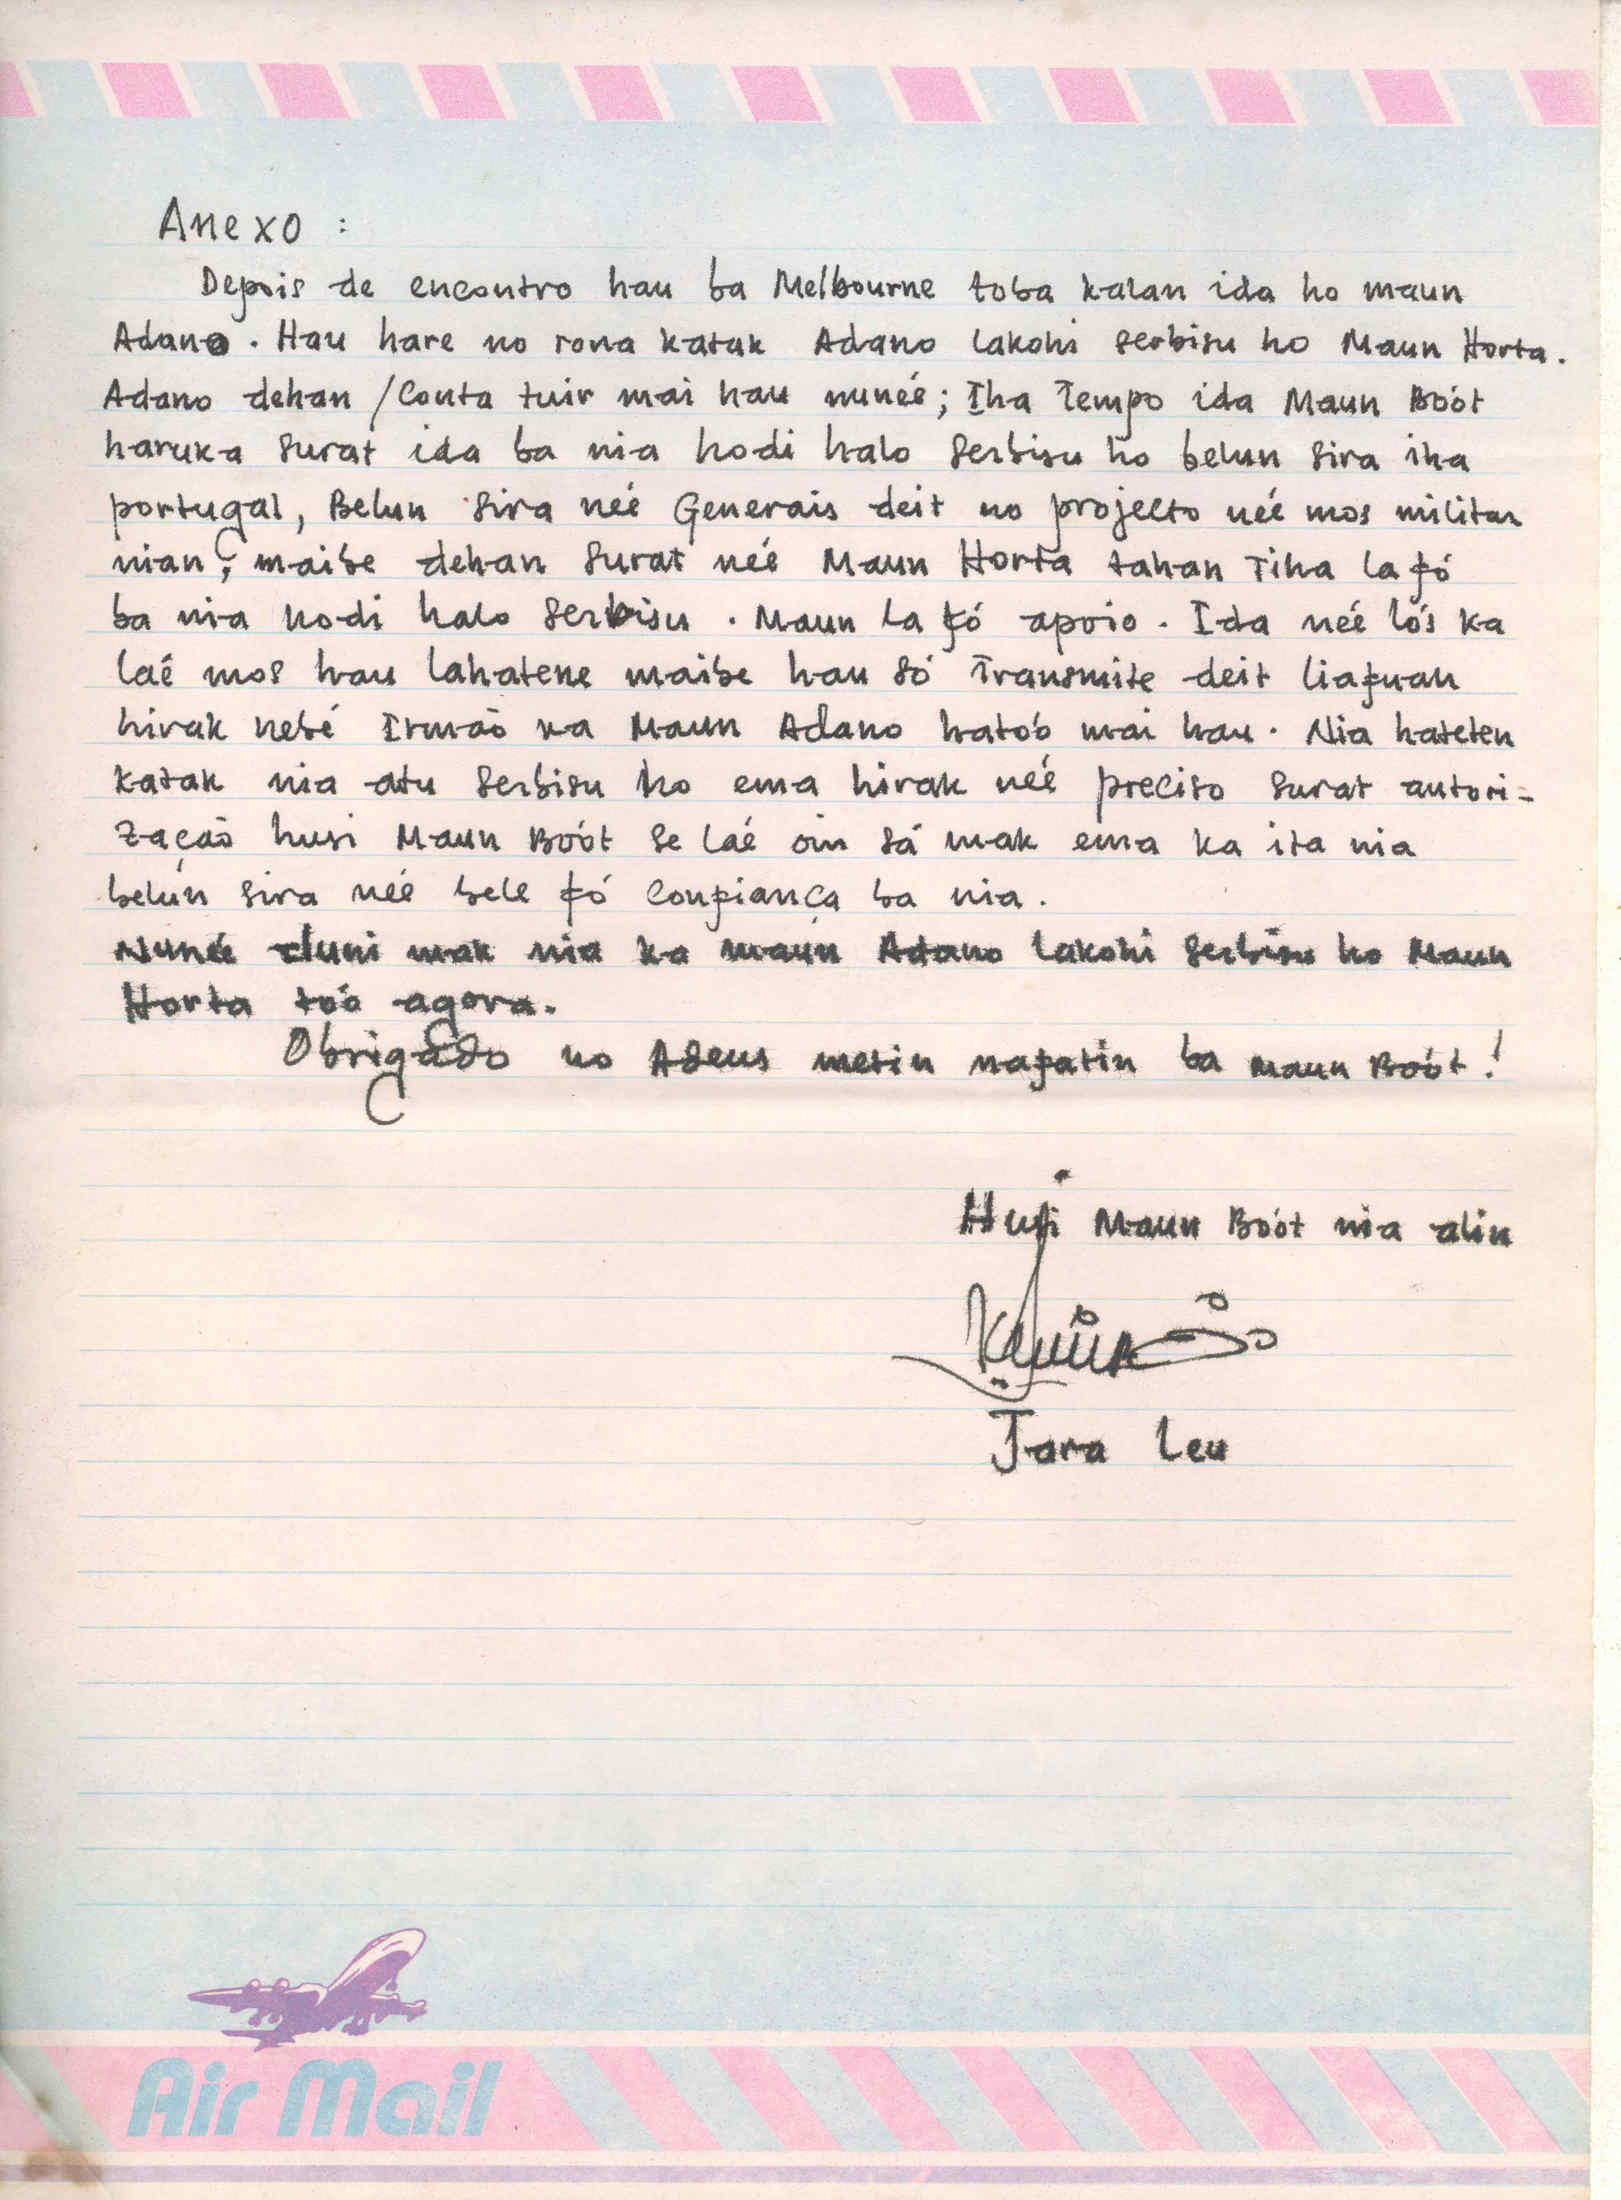 Anexo :
Depois de encontro hau ba Melbourne toba kalan ida ho maun
Adano. Hau hare no rona katak Adano lakohi serbisu ho Maun Horta.
Adano dehan / Conta tuir mai hau nuneé; Iha Tempo ida Maun Boót
haruka surat ida ba nia hodi halo serbisu ho belun sira iha
portugal, Belun sira neé Generais deit no projecto neé mos militar
nian; maibe dehan surat neé Maun Horta tahan Tiha la fó
ba nia hodi halo serbisu. Maun la fó apoio. Ida neé lós ka
laé mos hau lahatene maibe hau só Transmite deit liafuan
hirak nebé Irmaõ ka Maun Adano hatoó mai hau. Nia hateten
katak nia atu serbisu ho ema hirak neé preciso surat autori-
zaçaõ husi Maun Boót se laé oin sá mak ema ka ita nia
belun sira neé bele fó Confiança ba nia.
Nuneé duni mak nia ka maun Adano lakohi serbisu ho Maun
Horta toó agora.
Obrigado no Adeus metin nafatin ba Maun Boót!
Husi Maun Boót nia alin
Jara Leu
Air Mail